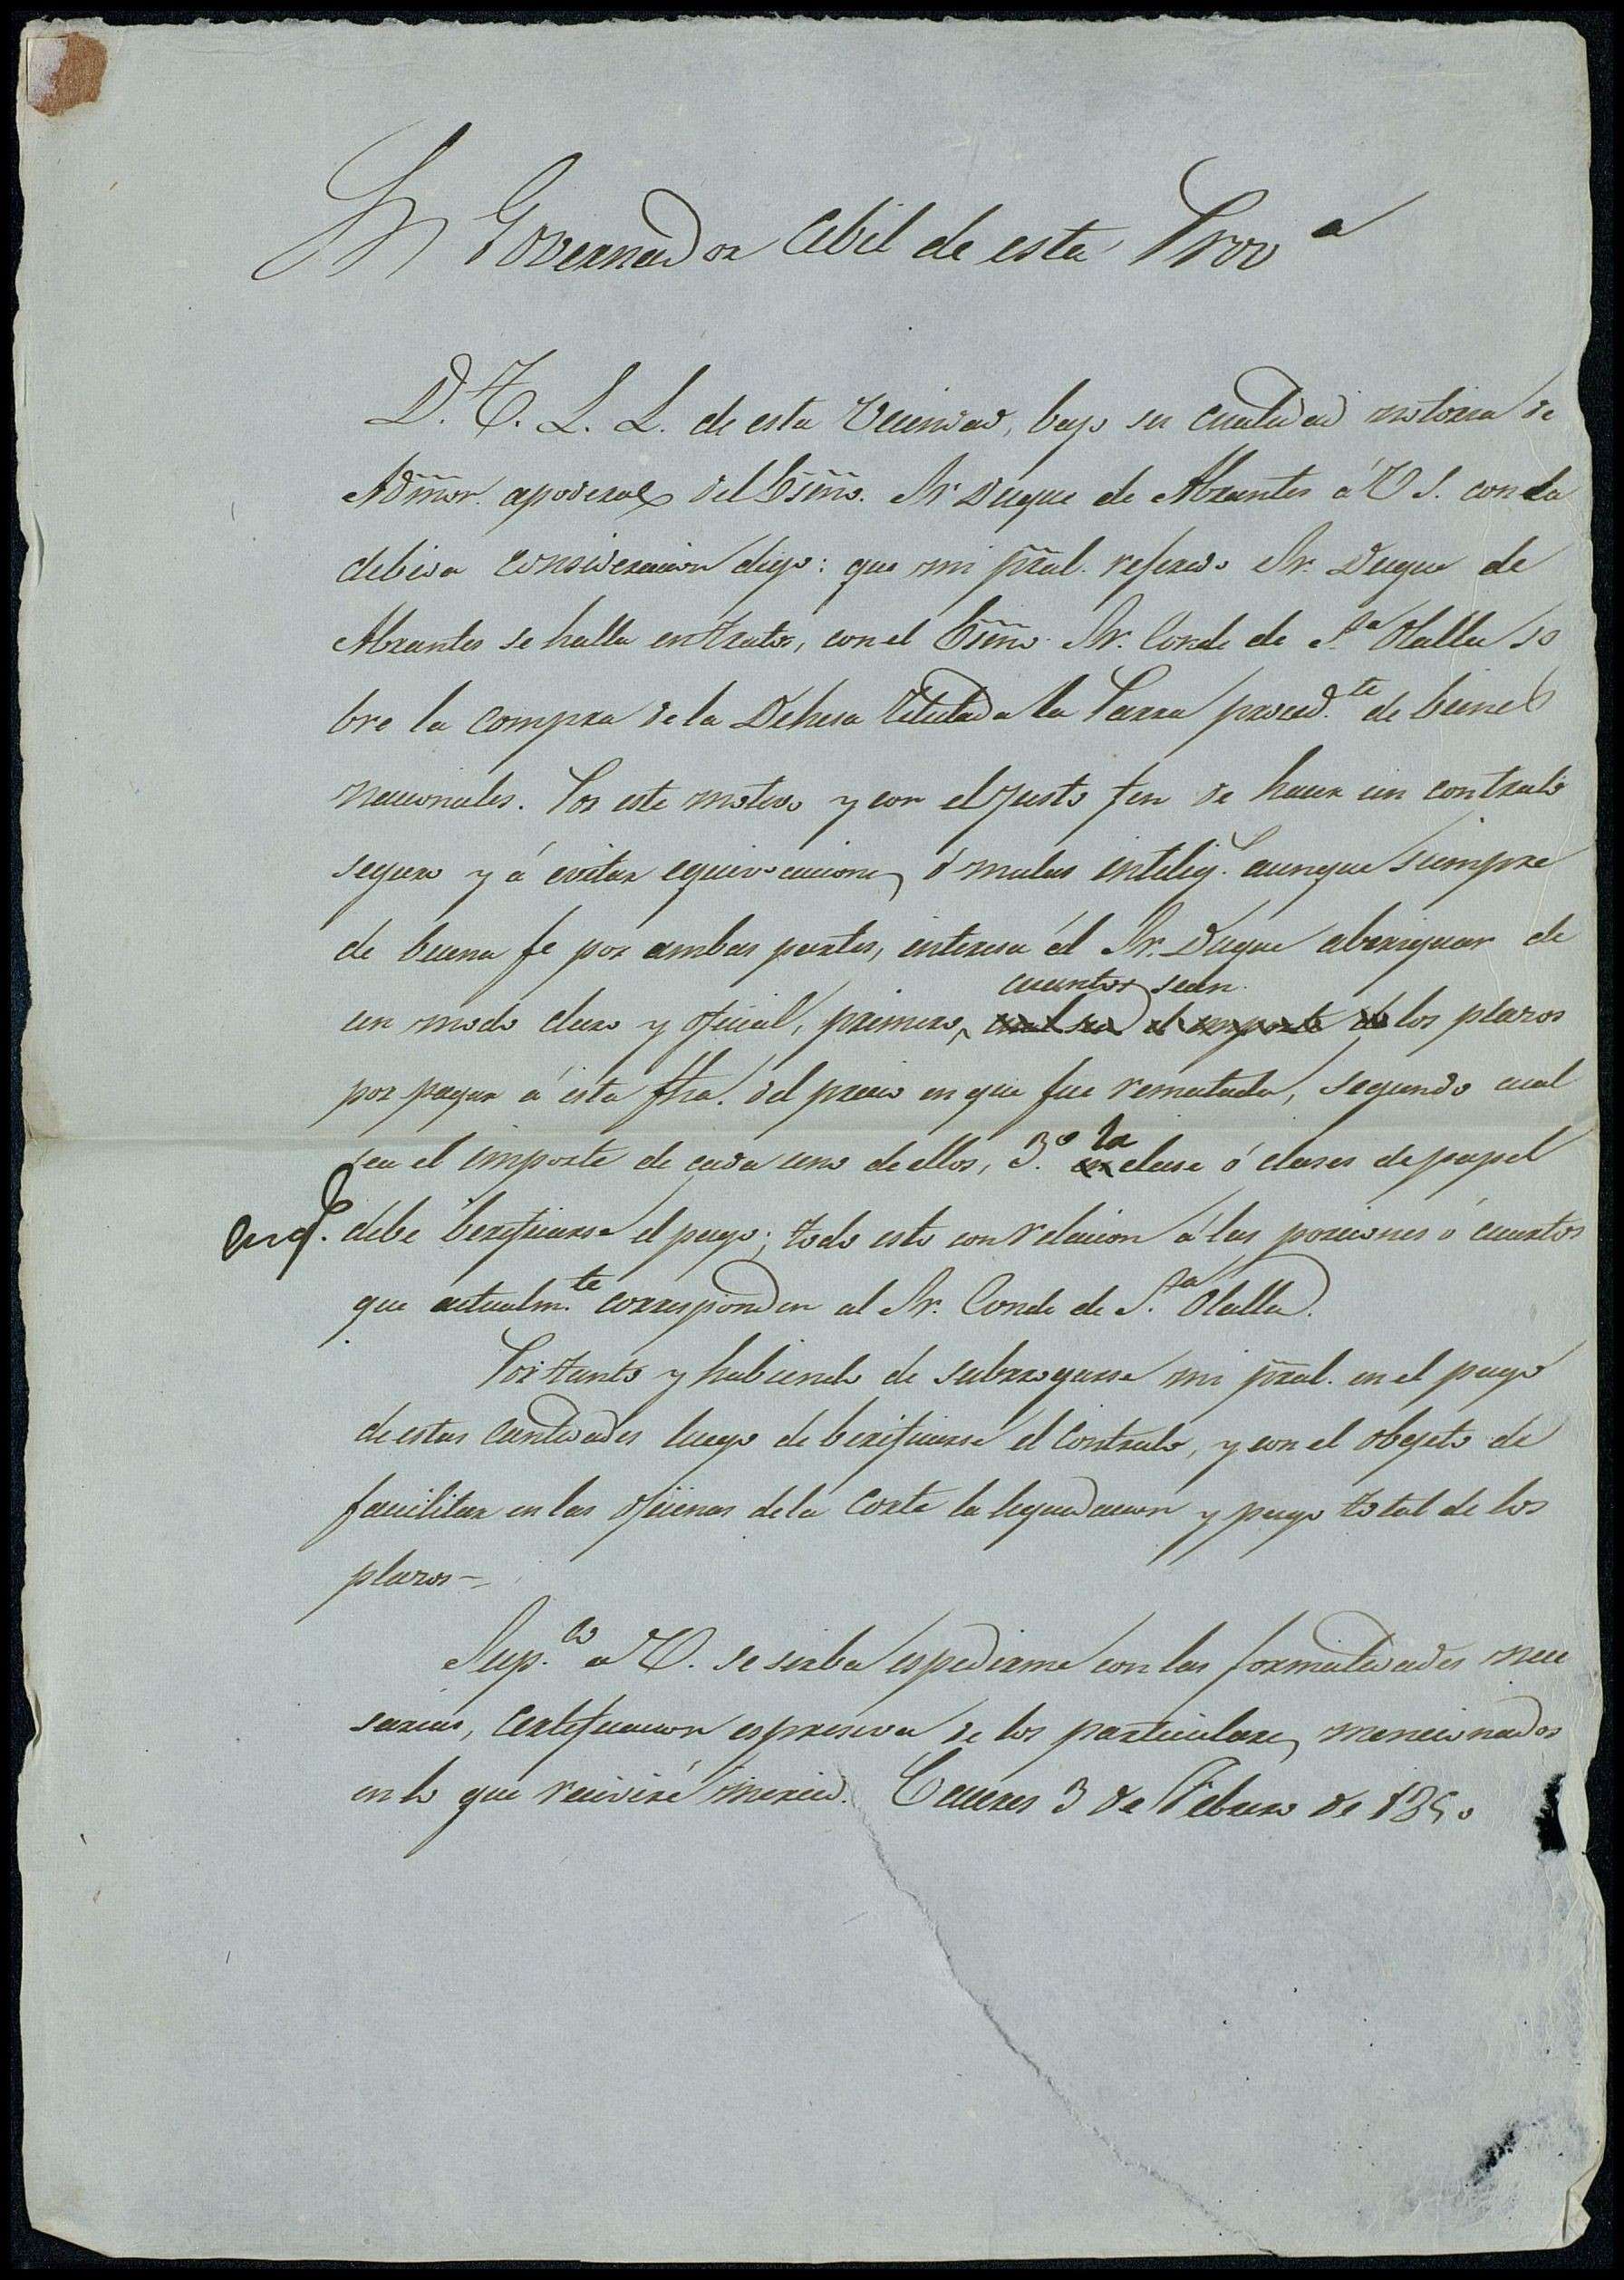 Sr Governador Cibil de esta Provª
D. T. L. L. de esta Vecindad, bajo su cualidad notoria de
Admõr. apoderado del Esmõ. Sr Duque de Abrantes á V S. con la
debida consideracion digo: que mi pr̃al. referido Sr. Duque de
Abrantes se halla en tratos, con el Esmõ Sr. Conde de S.ta Olalla so
bre la compra de la Dehesa titulada la Parra proced.te de bienes
nacionales. Por este motivo y con el justo fin de hacer un contrato
seguro y á evitar equivocaciones ó malas intelig.s aunque siempre
de buena fe por ambas partes, interesa ál Sr. Duque aberiguar de
cuantos sean
un modo claro y oficial, primero, cual sea el importe de los plazos
por pagar á esta fha. del precio en que fue rematada, segundo cual
sea el importe de cada uno de ellos, 3.º en la clase ó clases de papel
en q.e debe berificarse el pago; todo esto con relacion á las porciones ó cuartos
que actualm.te corresponden al Sr. Conde de S.ta Olalla.
Por tanto y habiendo de subrrogarse mi pr̃al. en el pago
de estas cantidades luego de berificarse el contrato, y con el objeto de
facilitar en las oficinas de la Corte la liquidacion y pago total de los
plazos=
Sup.co a V. se sirba espedirme con las formalidades nece
sarias, certificacion espresiva de los particulares mencionados
en lo que recivire merced. Caceres 3 de Febrero de 1850